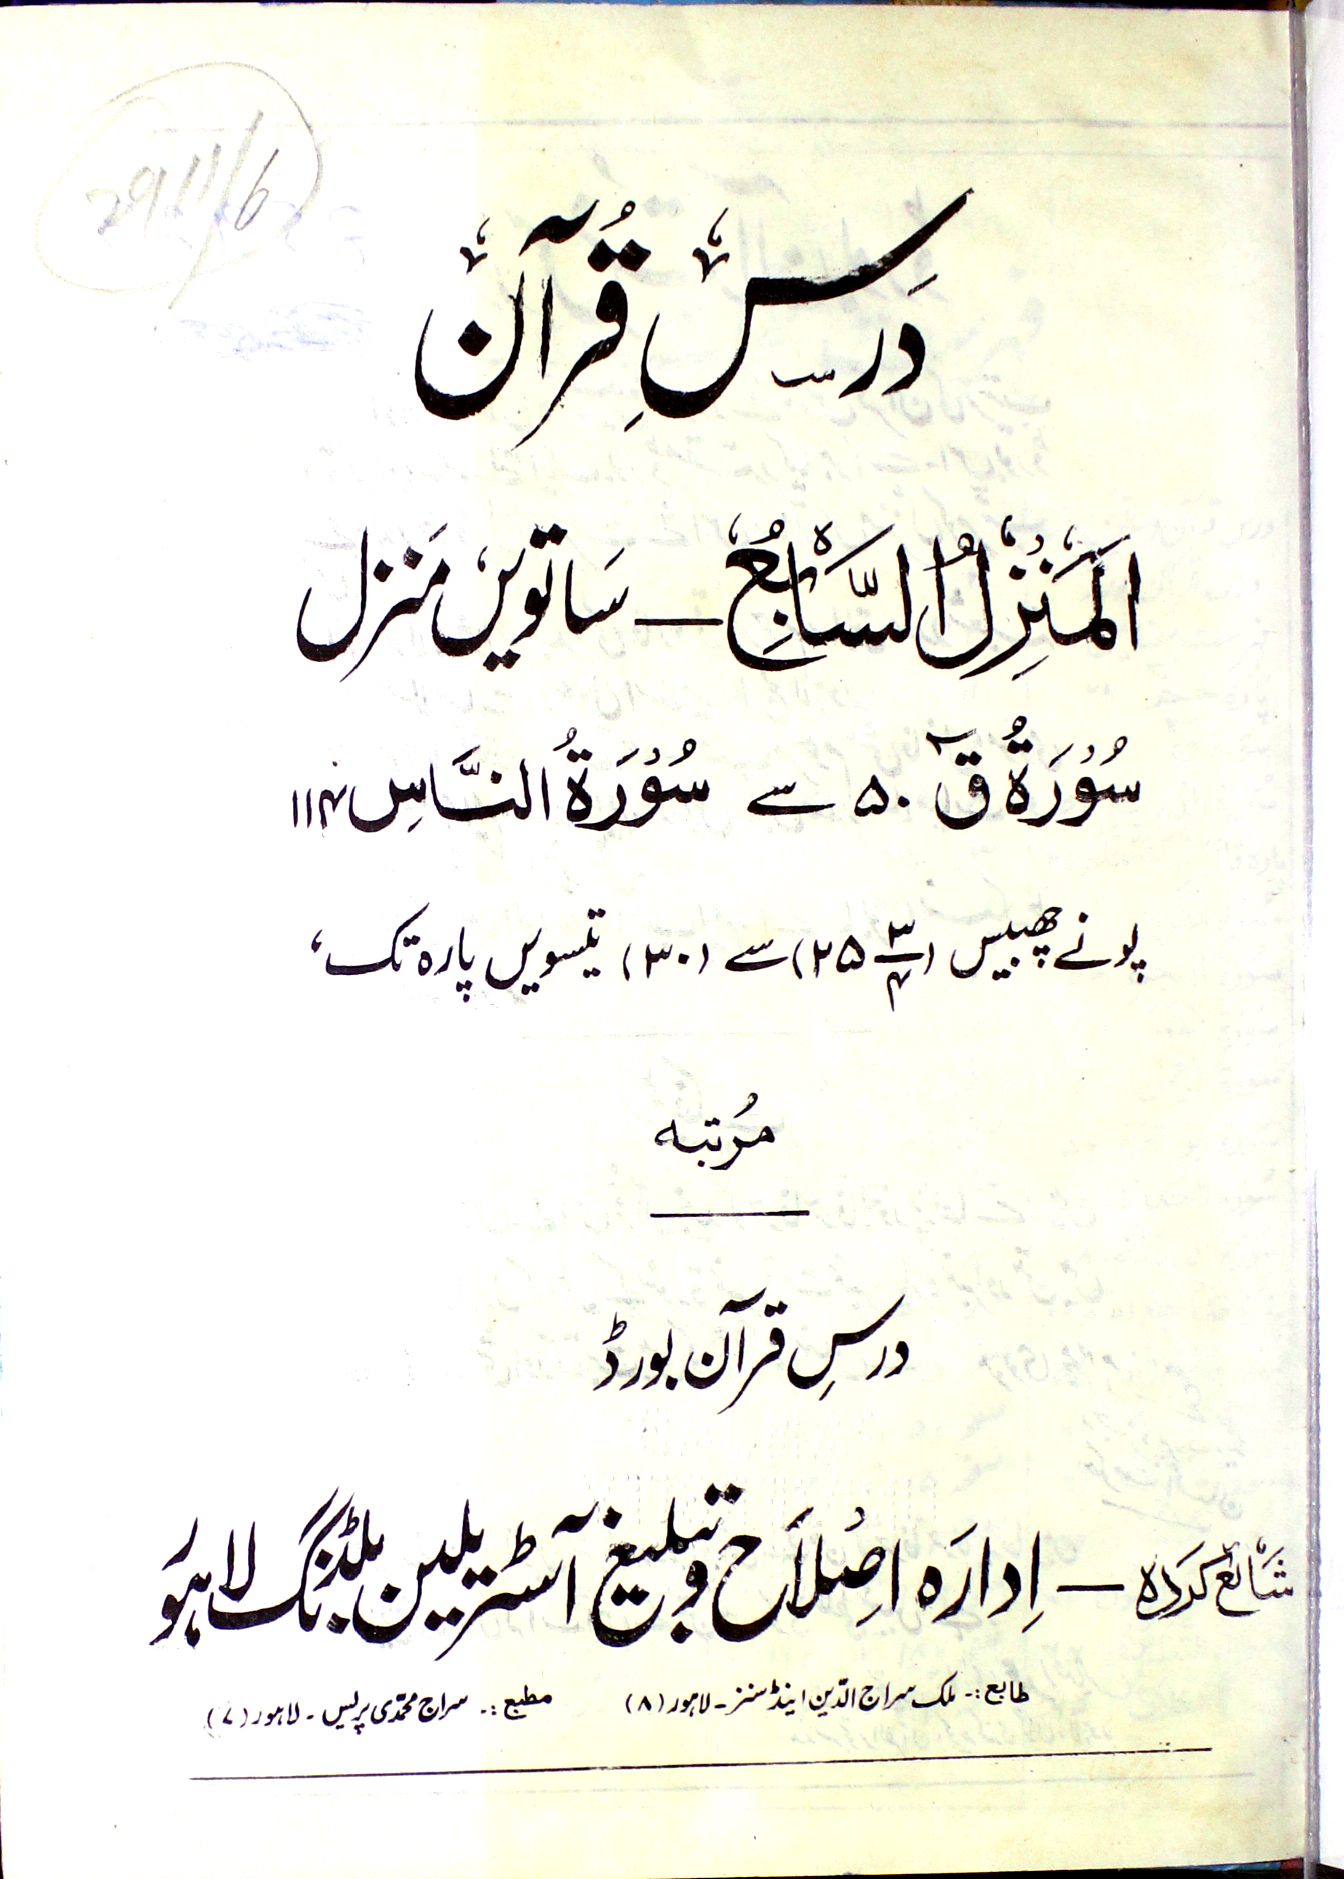 2911/6
دَرسِ قُرآن
اَلمَنزِلُ السَّابِعُ — سَاتویں مَنزل
سُوْرَةُ قٓ ۵۰ سے سُوْرَةُ النَّاسِ ۱۱۴
پونے چھبیس (۲۵ ۳/۴) سے (۳۰) تیسویں پارہ تک،
مُرتبہ
درسِ قرآن بورڈ
شَائع کَردَہ — اِدارَہ اِصْلَاح و تبلیغ آسٹریلین بلڈنگ لاہَور
طابع :- ملک سراج الدّین اینڈ سنز - لاہور (۸) مطبع :- سراج محمّدی پریس - لاہور (۷)